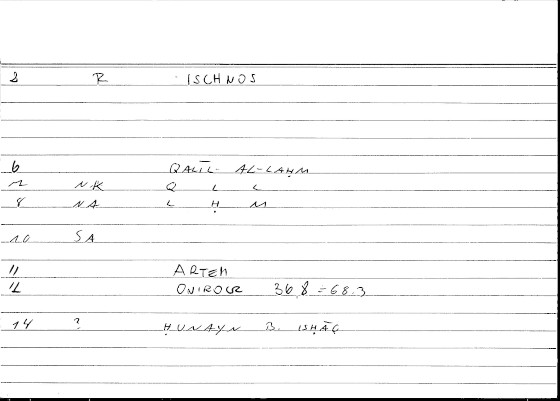 2 R ISCHNOS
6 QALĪL AL-LAḤM
7 NK Q L L
8 NA L Ḥ M
10 SA
11 ARTEM
12 ONIROCR 36.8 = 68.3
14 ? ḤUNAYN B. ISḤĀQ